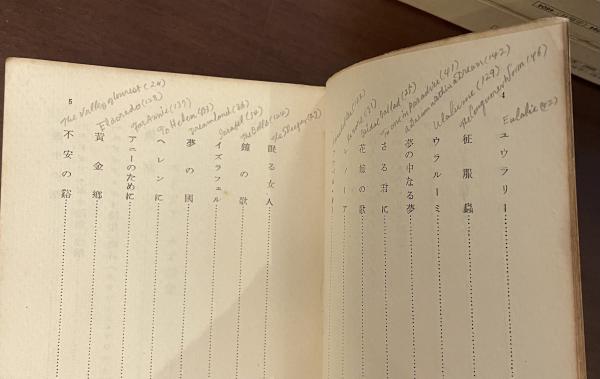 4
Eulalie
ユウラリー
The Conqueror Worm (46)
征服蟲
Ulalume (129)
ウラルーミ
A Dream within a Dream (142)
夢の中なる夢
To one in Paradise (41)
さる君に
Bridal Ballad (38)
花嫁の歌
Lenore (31)
レノーア
The Sleeper
眠る女人
The Bells (124)
鐘の歌
Israfel
イズラフェル
Dreamland
夢の國
To Helen
ヘレンに
For Annie (137)
アニーのために
Eldorado (128)
黃金鄕
The Valley of Unrest (24)
不安の谿
5